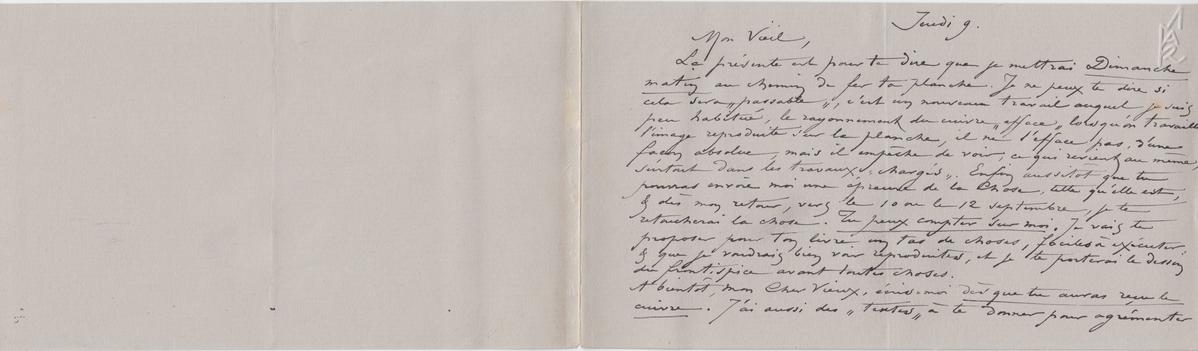 Jeudi 9.
Mon Vieil,
La présente est pour te dire que je mettrai Dimanche
matin au chemin de fer ta planche. Je ne peux te dire si
cela sera „passable„, c'est un nouveau travail auquel je suis
peu habitué, le rayonnement du cuivre „efface„ lorsqu'on travaille
l'image reproduite sur la planche, il ne l'efface pas, d'une
façon absolue, mais il empêche de voir, ce qui revient au même,
surtout dans les travaux „chargés„. Enfin aussitôt que tu
pourras envoie moi une épreuve de la Chose, telle qu'elle est,
& dès mon retour, vers le 10 ou le 12 septembre, je te
retoucherai la chose. Tu peux compter sur moi. Je vais te
proposer pour ton livre un tas de choses, faciles à exécuter,
& que je voudrais bien voir reproduites, et je te porterai le dessin
du frontispice avant toutes choses.
A bientôt, mon Cher Vieux, écris-moi dès que tu auras reçu le
cuivre. J'ai aussi des „textes„ à te donner pour agrémenter